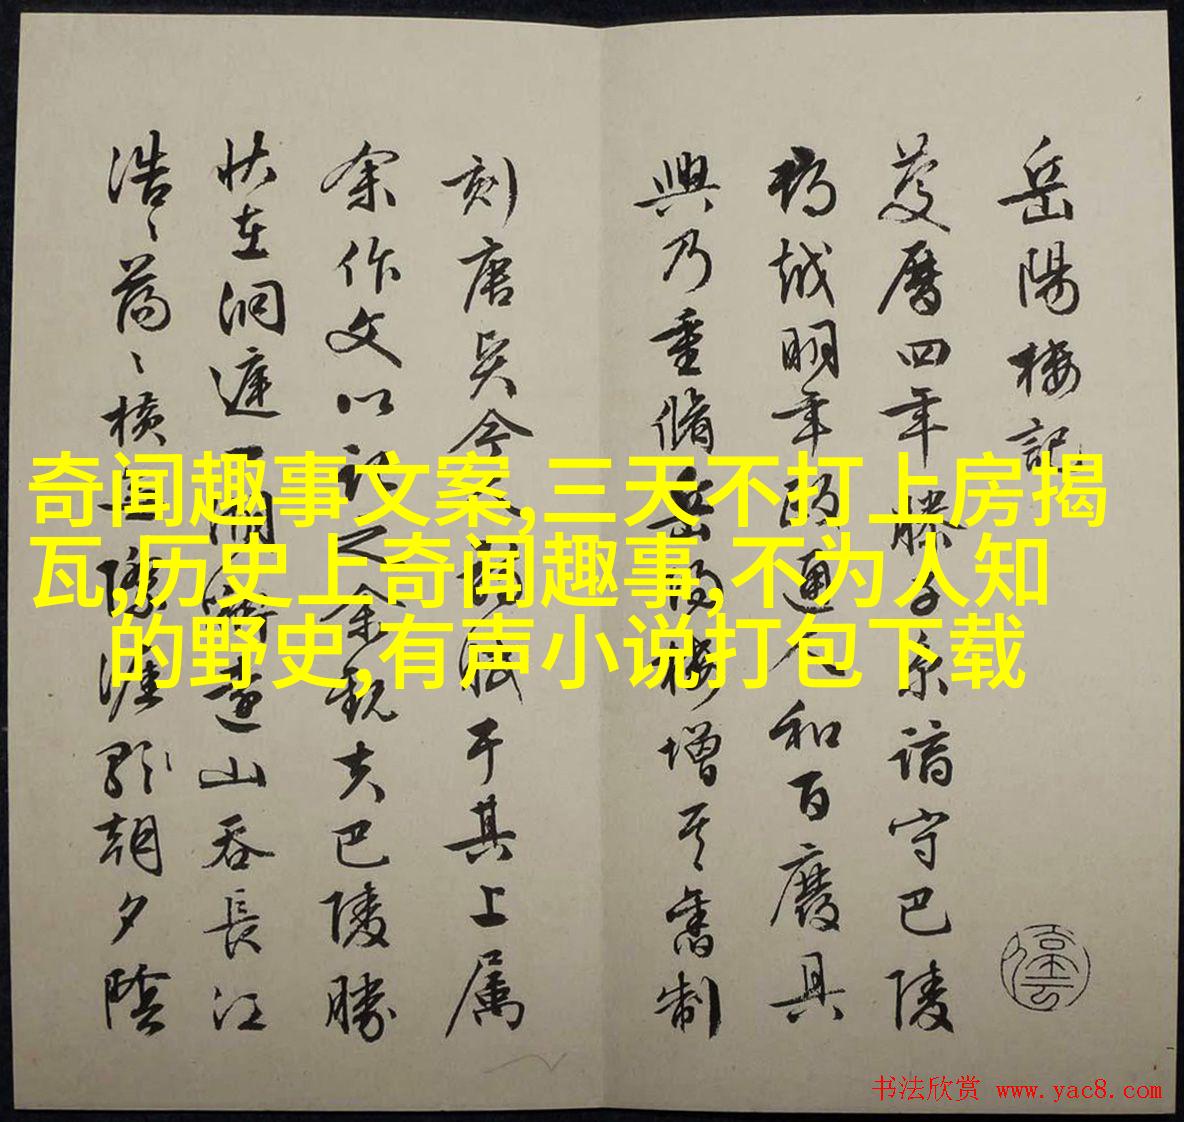 岳陽樓記
慶曆四年滕子京謫守巴陵
郡越明年政通人和百廢具
興乃重脩岳陽樓增其舊制
刻唐賢今人詩賦于其上属
余作文以記之余觀夫巴陵勝
状在洞庭一湖銜遠山吞長江
浩〻蕩〻橫無際涯朝夕陰
奇闻趣事文案,三天不打上房揭
瓦,历史上奇闻趣事,不为人知
的野史,有声小说打包下载
书法欣赏 www.yac8.com